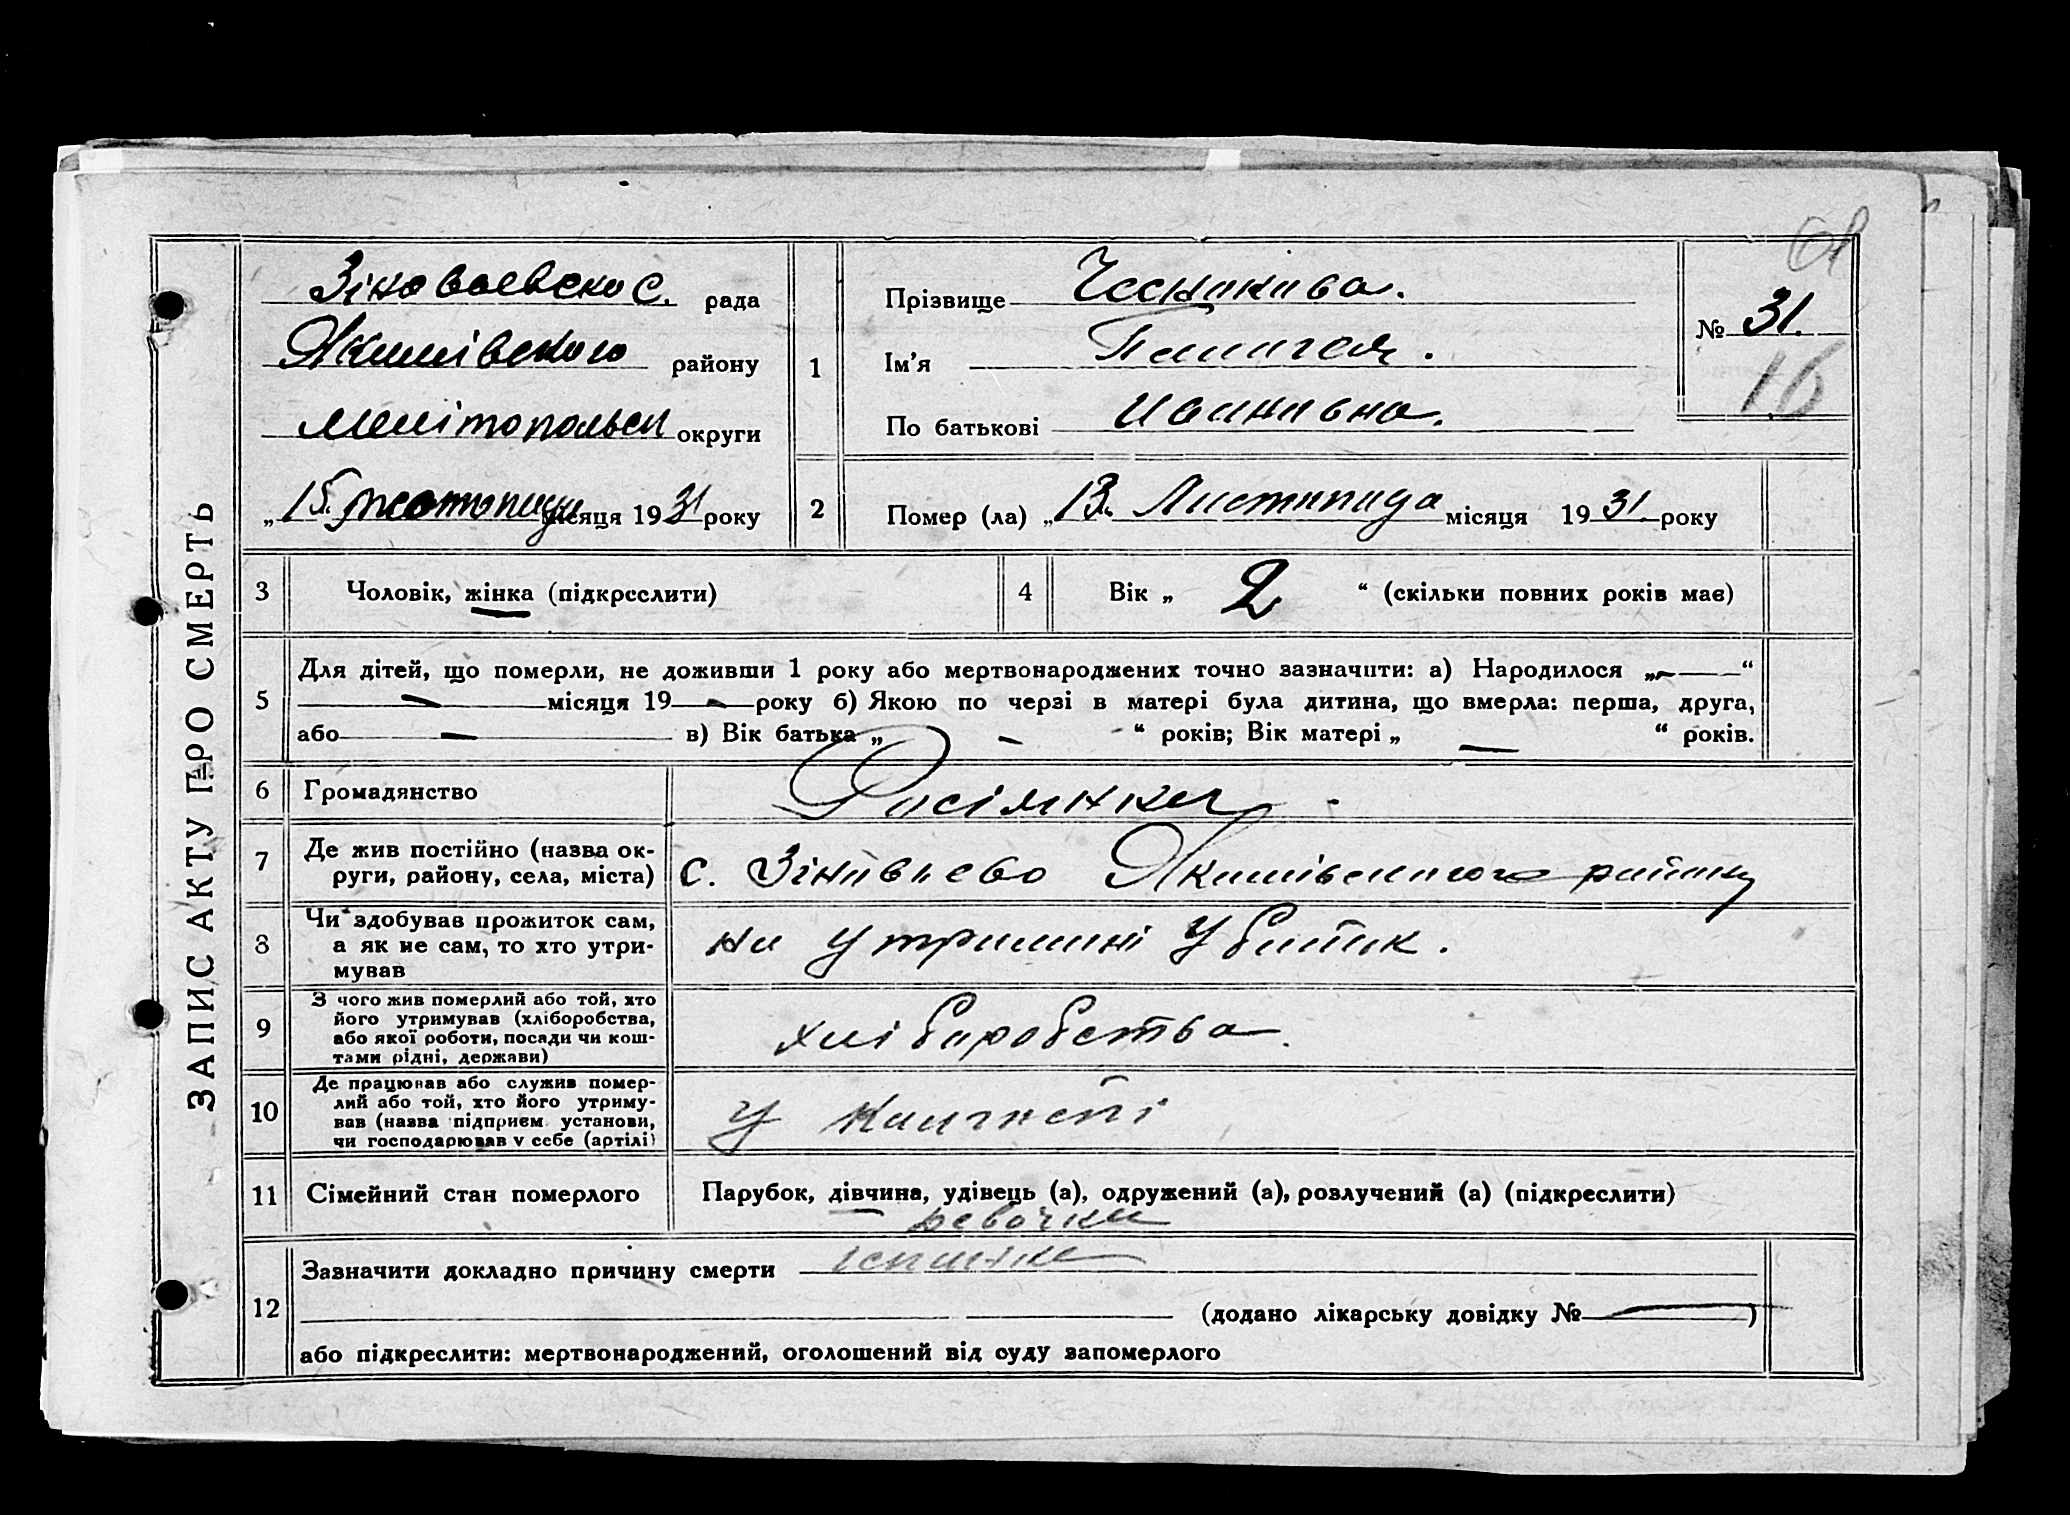 ЗАПИС АКТУ ПРО СМЕРТЬ
Зіновьевско С. рада
Якимівського району
Мелітопольск округи
„ 15 Листопада місяця 1931 року
1
Прізвище Чеснокова.
Ім'я Пелагея.
По батькові Ивановна.
№ 31.
16
2 Помер (ла) „ 13. Листопада місяця 1931 року
3 Чоловік, жінка (підкреслити)
4 Вік „ 2 “ (скільки повних років має)
5 Для дітей, що померли, не доживши 1 року або мертвонароджених точно зазначити: а) Народилося „ — “
— місяця 19 — року б) Якою по черзі в матері була дитина, що вмерла: перша, друга,
або — в) Вік батька „ — “ років; Вік матері „ — “ років.
6 Громадянство Росіянка.
7 Де жив постійно (назва ок-
руги, району, села, міста) с. Зіновьево Якимівського району
8 Чи здобував прожиток сам,
а як не сам, то хто утри-
мував на утримані у батьк.
9 З чого жив померлий або той, хто
його утримував (хліборобства,
або якої роботи, посади чи кош-
тами рідні, держави) хліборобства.
10 Де працював або служив помер-
лий або той, хто його утриму-
вав (назва підприєм. установи,
чи господарював у себе (артілі) у
11 Сімейний стан померлого Парубок, дівчина, удівець (а), одружений (а), розлучений (а) (підкреслити)
девочка
12 Зазначити докладно причину смерти
(додано лікарську довідку № — )
або підкреслити: мертвонароджений, оголошений від суду запомерлого